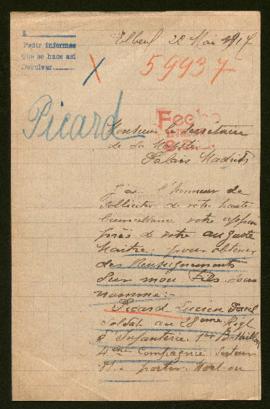 Pedir informes
que se hace así
Devolver
Elbeuf 22 Mai 1917
X 59937
Picard
Fecho
Monsieur le Secrétaire
de la
Palais Madrid
J'ai l'honneur de
solliciter de votre haute
bienveillance votre appui
près de votre auguste
Maître pour obtenir
des Renseignements
sur mon fils
nommé :
Picard Lucien
soldat au 28ème Regt
d'Infanterie 1er Bataillon
4ème Compagnie